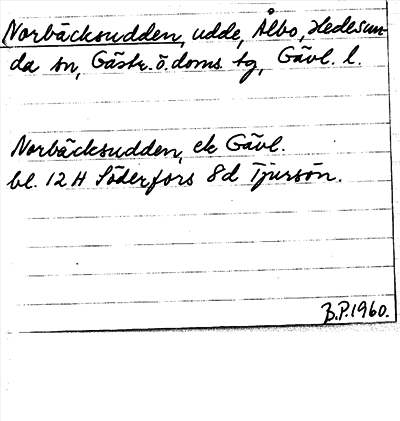 Norbäcksudden, udde, Ålbo, Hedesun-
da sn, Gästr. ö. doms. tg, Gävl. l.
Norbäcksudden, ek Gävl.
bl. 12 H Söderfors 8d Tjursön.
B.P. 1960.